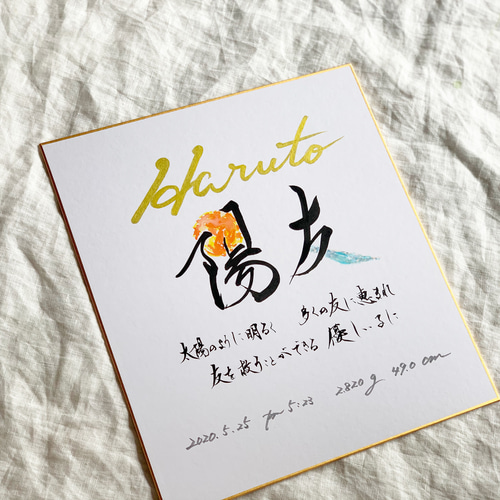 Haruto
陽友
太陽のように明るく 多くの友に恵まれ
友を救うことができる 優しい子に
2020.5.25 pm 5:23 2820g 49.0cm